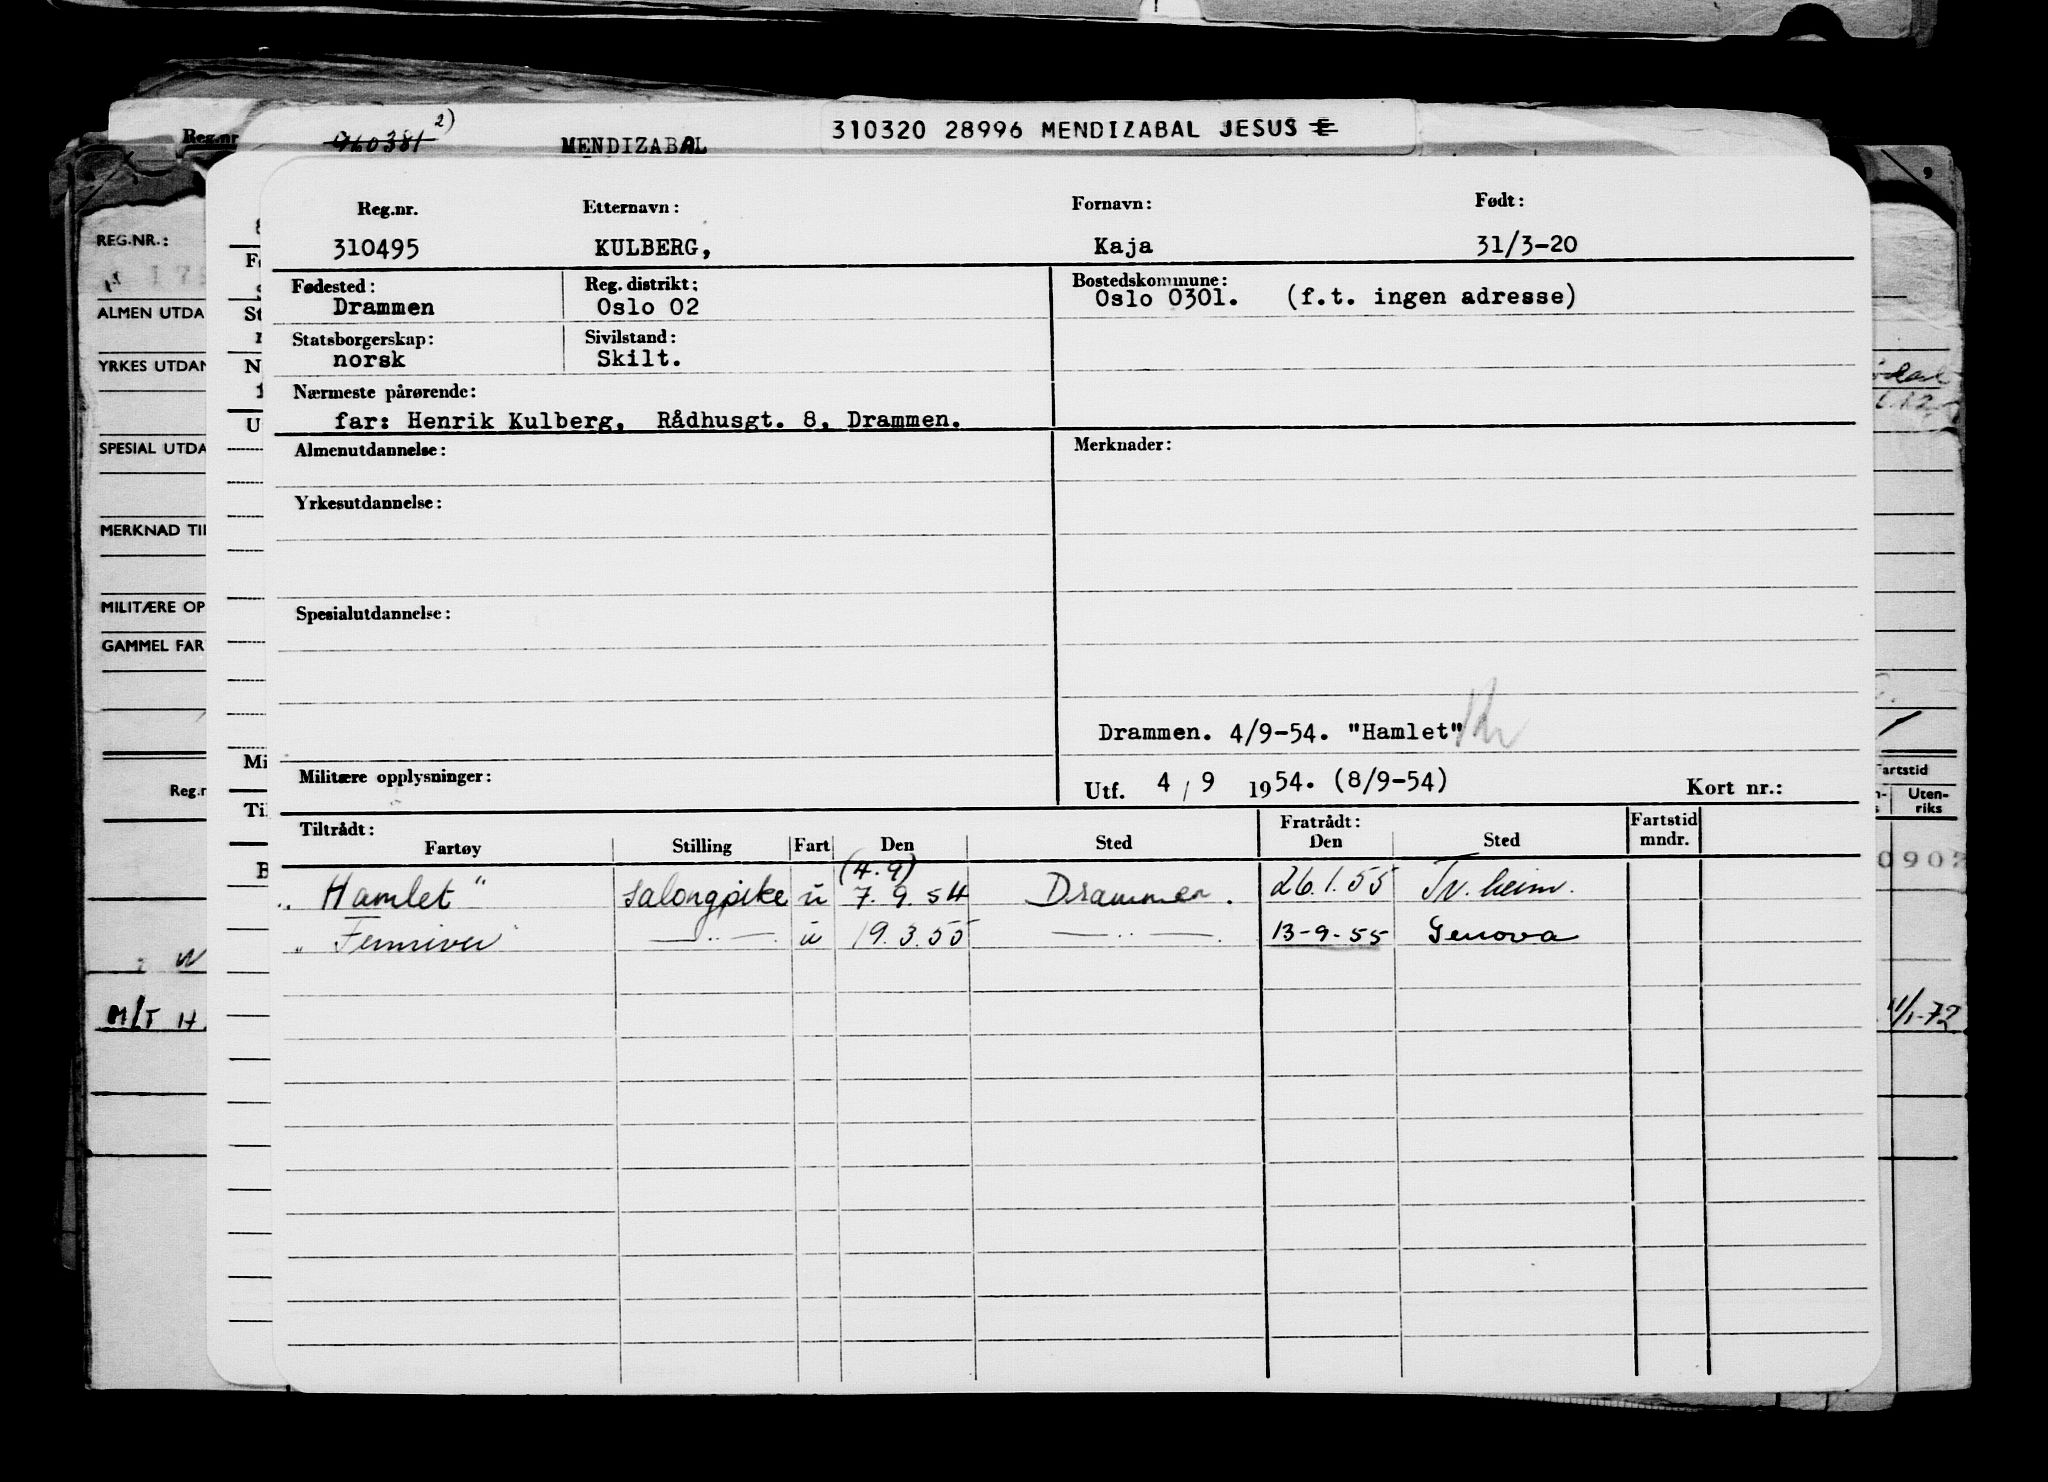 Reg.nr
960381 2)
MENDIZABAL
310320 28996 MENDIZABAL JESUS E
Reg.nr. Etternavn: Fornavn: Født:
310495 KULBERG, Kaja 31/3-20
Fødested: Reg. distrikt: Bostedskommune:
Drammen Oslo 02 Oslo 0301. (f.t. ingen adresse)
Statsborgerskap: Sivilstand:
norsk Skilt.
Nærmeste pårørende:
far: Henrik Kulberg, Rådhusgt. 8, Drammen.
Almenutdannelse: Merknader:
Yrkesutdannelse:
Spesialutdannelse:
Drammen. 4/9-54. "Hamlet"
Militære opplysninger: Utf. 4 / 9 1954. (8/9-54) Kort nr.:
Tiltrådt: Fratrådt: Fartstid
Fartøy Stilling Fart Den Sted Den Sted mndr.
(4.9)
"Hamlet" salongpike u 7.9.54 Drammen. 26.1.55 Tr.heim.
" Fernriver" —"—. u 19.3.55 —"—. 13-9-55 Genova
REG.NR.:
ALMEN UTDA
YRKES UTDAN
SPESIAL UTDA
MERKNAD TIL
MILITÆRE OP
GAMMEL FAR
Reg.n
M/T H.
Mi
Til
artstid
Uten-
riks
0902
11/1-72